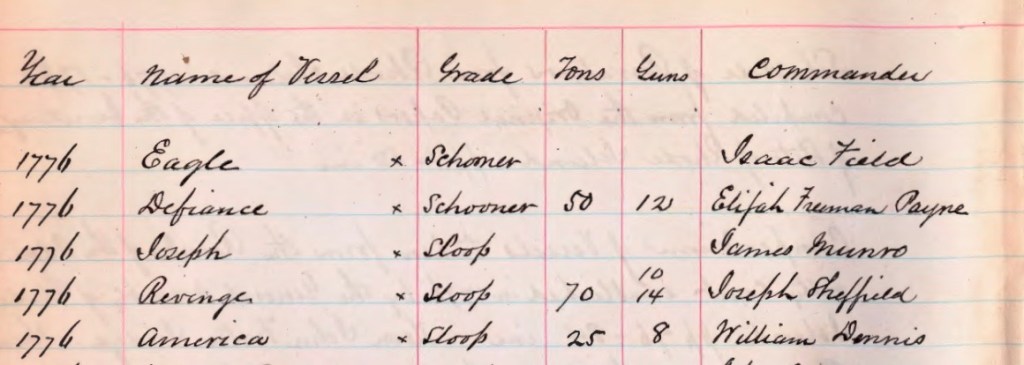 Year Name of Vessel Grade Tons Guns Commander
1776 Eagle x Schooner Isaac Field
1776 Defiance x Schooner 50 12 Elijah Freeman Payne
1776 Joseph x Sloop James Munro
10
1776 Revenge x Sloop 70 14 Joseph Sheffield
1776 America x Sloop 25 8 William Dennis